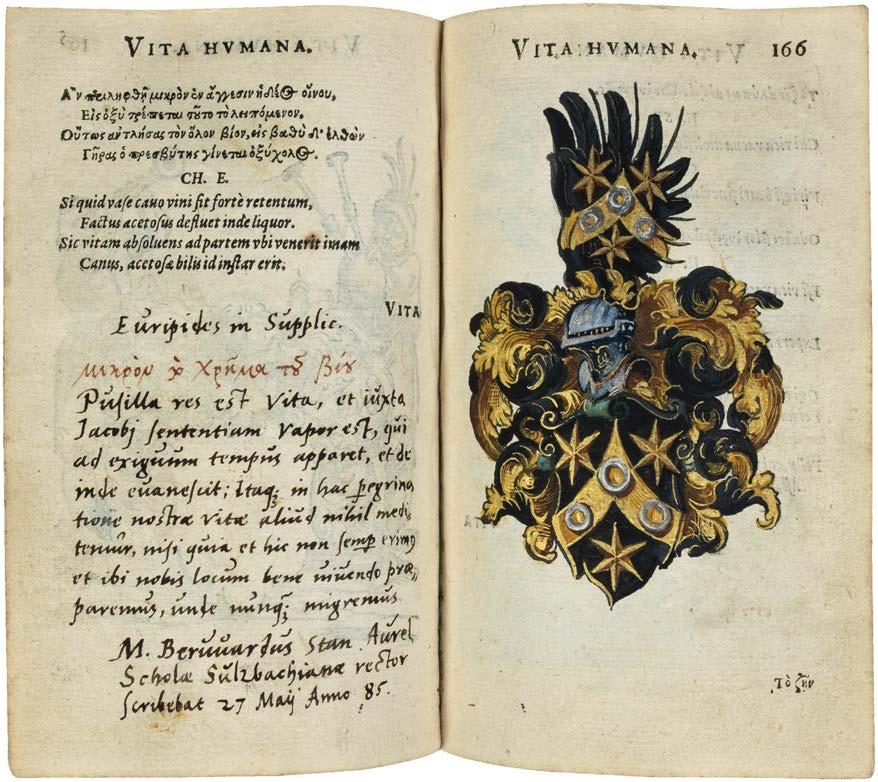 VITA HVMANA.
Ἂν περιληφθῇ μικρὸν ἐν ἄγγεσιν ἡδέος οἴνου,
Εἰς ὀξὺ τρέπεται τοῦτο τὸ λειπόμενον.
Οὕτως ἀντλήσας τὸν ὅλον βίον, εἰς βαθὺ δ' ἐλθὼν
Γῆρας ὁ πρεσβύτης γίνεται ὀξύχολος.
CH. E.
Si quid vase cavo vini sit fortè retentum,
Factus acetosus defluet inde liquor.
Sic vitam absoluens ad partem vbi venerit imam
Canus, acetosæ bilis id instar erit.
VITA
Euripides in Supplic.
μικρὸν χρῆμα τοῦ βίου
Pusilla res est vita, et iuxta
Jacobj sententiam vapor est, qui
ad exiguum tempus apparet, et de
inde euanescit; Itaq; in hac peregrina
tione nostræ vitæ aliud nihil medi
temur, nisi quia et hic non semp erimus
et ibi nobis locum bene uiuendo præ„
paremus, unde nunq; migremus
M. Beruuardus Stan Aurel
Scholæ Sulzbachianæ rector
scribebat 27 Maij Anno 85.
VITA HVMANA. 166
Τὸ ζῆν